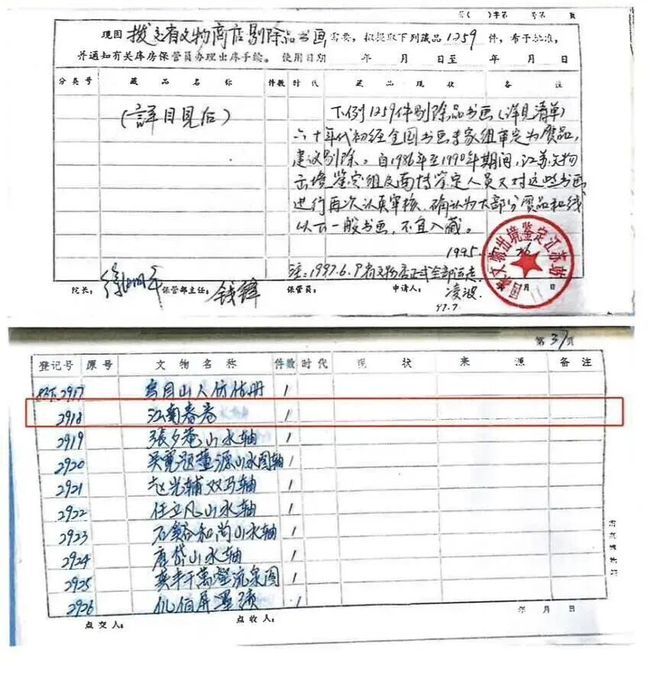 字( )字第 号第 页
现因 拨交省文物商店剔除品书画 需要,拟提取下列藏品 1259 件,希予批准,
并通知有关库房保管员办理出库手续。 使用日期 年 月 日至 年 月 日
分类号 藏品名称 件数 时代 藏品现状 备注
(詳目見后)
下列1259件剔除品书画(详见清单)
六十年代初经全国书画专家组审定为赝品,
建议剔除。自1986年至1990年期间,江苏文物
出境鉴定组及南博鉴定人员又对这些书画
进行再次认真审核,确认为大部分赝品和线
以下一般书画,不宜入藏。
1995
注:1997.6.9省文物店正式全部
院长: 保管部主任: 钱锋 保管员: 申请人: 凌波
97.7
文物出境鉴定江苏站
第 37 页
登记号 原号 文物名称 件数 时代 现状 来源 备注
2917 山人仿 册 1
2918 江南春卷 1
2919 張夕菴山水轴 1
2920 吴寬题董源山水图轴 1
2921 赵光辅双马轴 1
2922 任立凡山水轴 1
2923 石谿和尚山水轴 1
2924 唐岱山水轴 1
2925 流泉图 1
2926 倪伯屏墨蹟 1
点交人: 点收人: 年 月 日